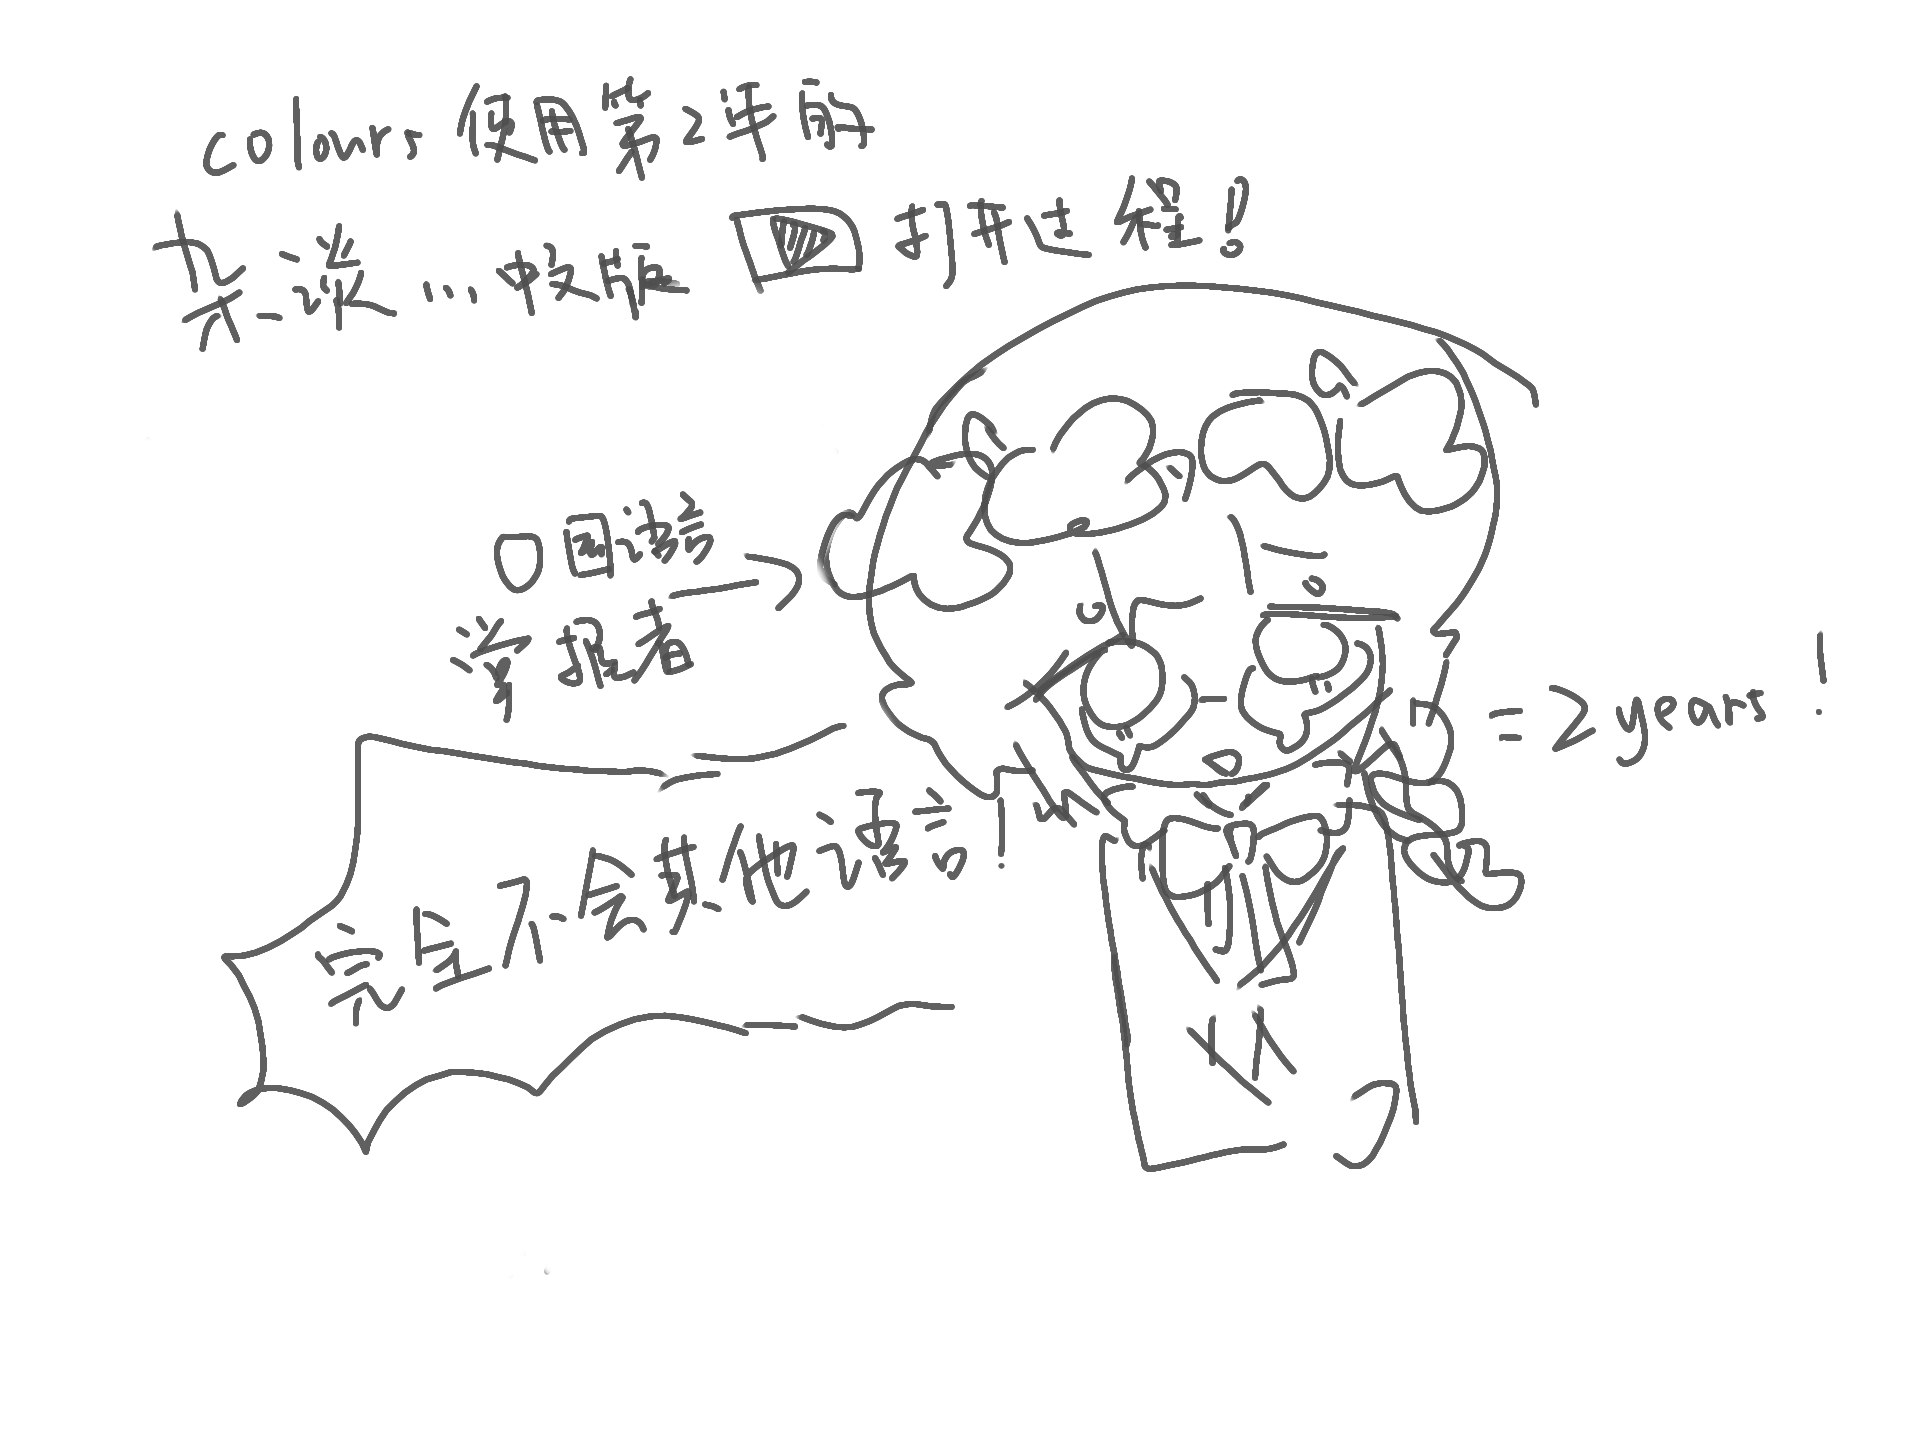 colours 使用第2年的
杂谈...中文版 打开过程!
〇国语
掌握者
= 2 years!
完全不会其他语言!